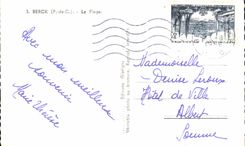 3. BERCK (P.-de-C.) - La Plage
Avec mon meilleur
souvenir
Marie Thérèse
Mademoiselle
Denise Leroux
Hôtel de Ville
Albert
Somme